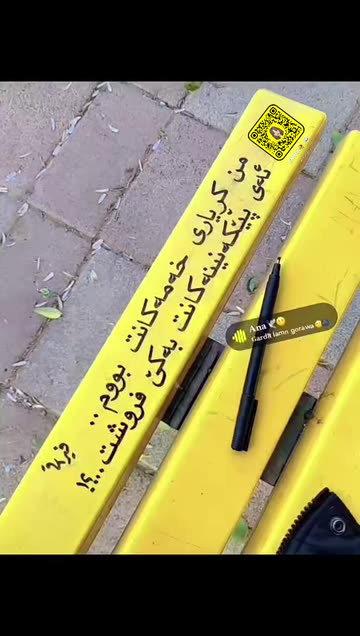 من کڕیاری خەمەکانت بووم..
ئەی پێکەنینەکانت بەکێ فرۆشت..؟!
Ana
Gardit lamn gorawa